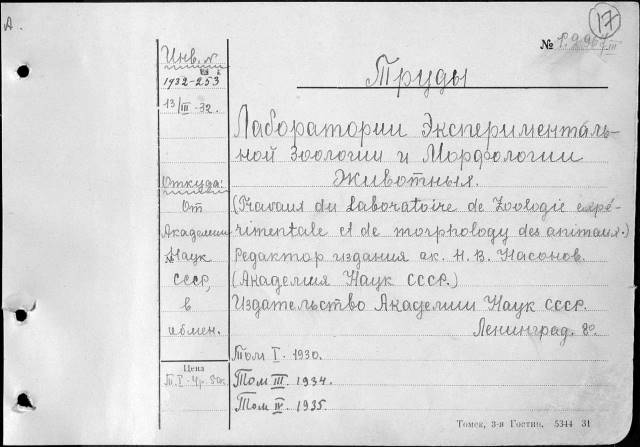 А.
17
№ P.2967/III
Труды
Инв. №
1932-253
13/III-32.
Лаборатории Эксперименталь-
ной Зоологии и Морфологии
Животных.
Откуда:
От
Академии
Наук
СССР,
в
обмен.
(Travaux du Laboratoire de Zoologie expé-
rimentale et de morphology des animaux.)
Редактор издания ак. Н. В. Насонов.
(Академия Наук СССР.)
Издательство Академии Наук СССР.
Ленинград. 8º
Том I. 1930.
Том III. 1934.
Том IV. 1935.
Цена
Т. I - 4р. 50к.
Томск, 3-я Гостип. 5344 31